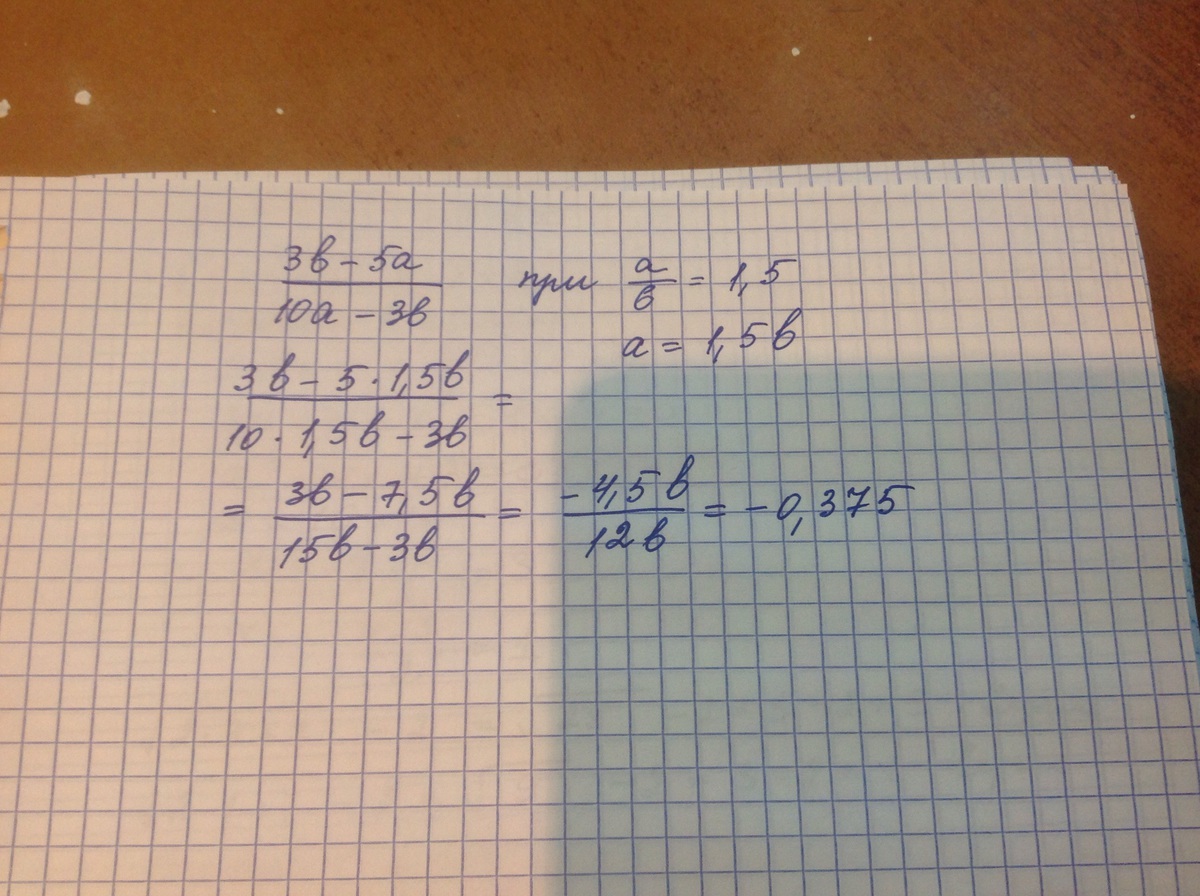 3в - 5а / 10а - 3в при а/в = 1,5
а = 1,5в
3в - 5 · 1,5в / 10 · 1,5в - 3в =
= 3в - 7,5в / 15в - 3в = -4,5в / 12в = -0,375